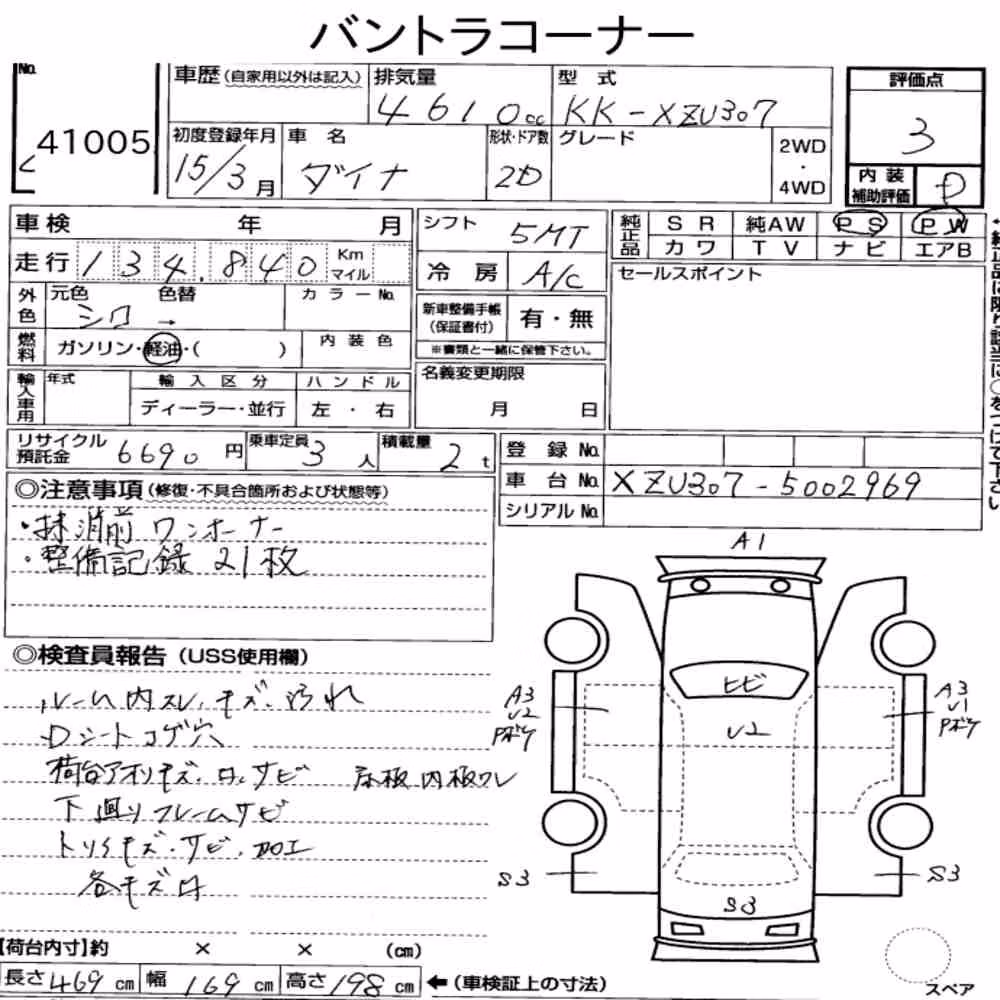 バントラコーナー
No. 41005
車歴(自家用以外は記入)
排気量 4610cc
型式 KK-XZU307
評価点 3
初度登録年月 15/3月
車名 ダイナ
形状・ドア数 2D
グレード
2WD・4WD
内装補助評価 D
車検 年 月
シフト 5MT
純正品 SR 純AW PS PW
カワ TV ナビ エアB
走行 134.840 Km マイル
冷房 A/C
セールスポイント
外色 元色 シロ → 色替 カラーNo.
新車整備手帳(保証書付) 有・無
※書類と一緒に保管下さい。
燃料 ガソリン・軽油・( ) 内装色
名義変更期限 月 日
輸入車用 年式 輸入区分 ハンドル
ディーラー・並行 左・右
リサイクル預託金 6690円 乗車定員 3人 積載量 2t
登録No.
車台No. XZU307-5002969
シリアルNo.
◎注意事項(修復・不具合箇所および状態等)
・抹消前 ワンオーナー
・整備記録 21枚
◎検査員報告(USS使用欄)
ルーム内スレ,キズ,汚れ
Dシートコゲ穴
荷台アオリキズ・凹,サビ 床板内板ワレ
下廻りフレームサビ
トリイキズ・サビ,加工
各キズ凹
A1
ヒビ
A3 U2 Pボケ
U2
A3 U1 Pボケ
S3
S3
S3
スペア
【荷台内寸】約 × × (cm)
長さ469cm 幅169cm 高さ198cm ←(車検証上の寸法)